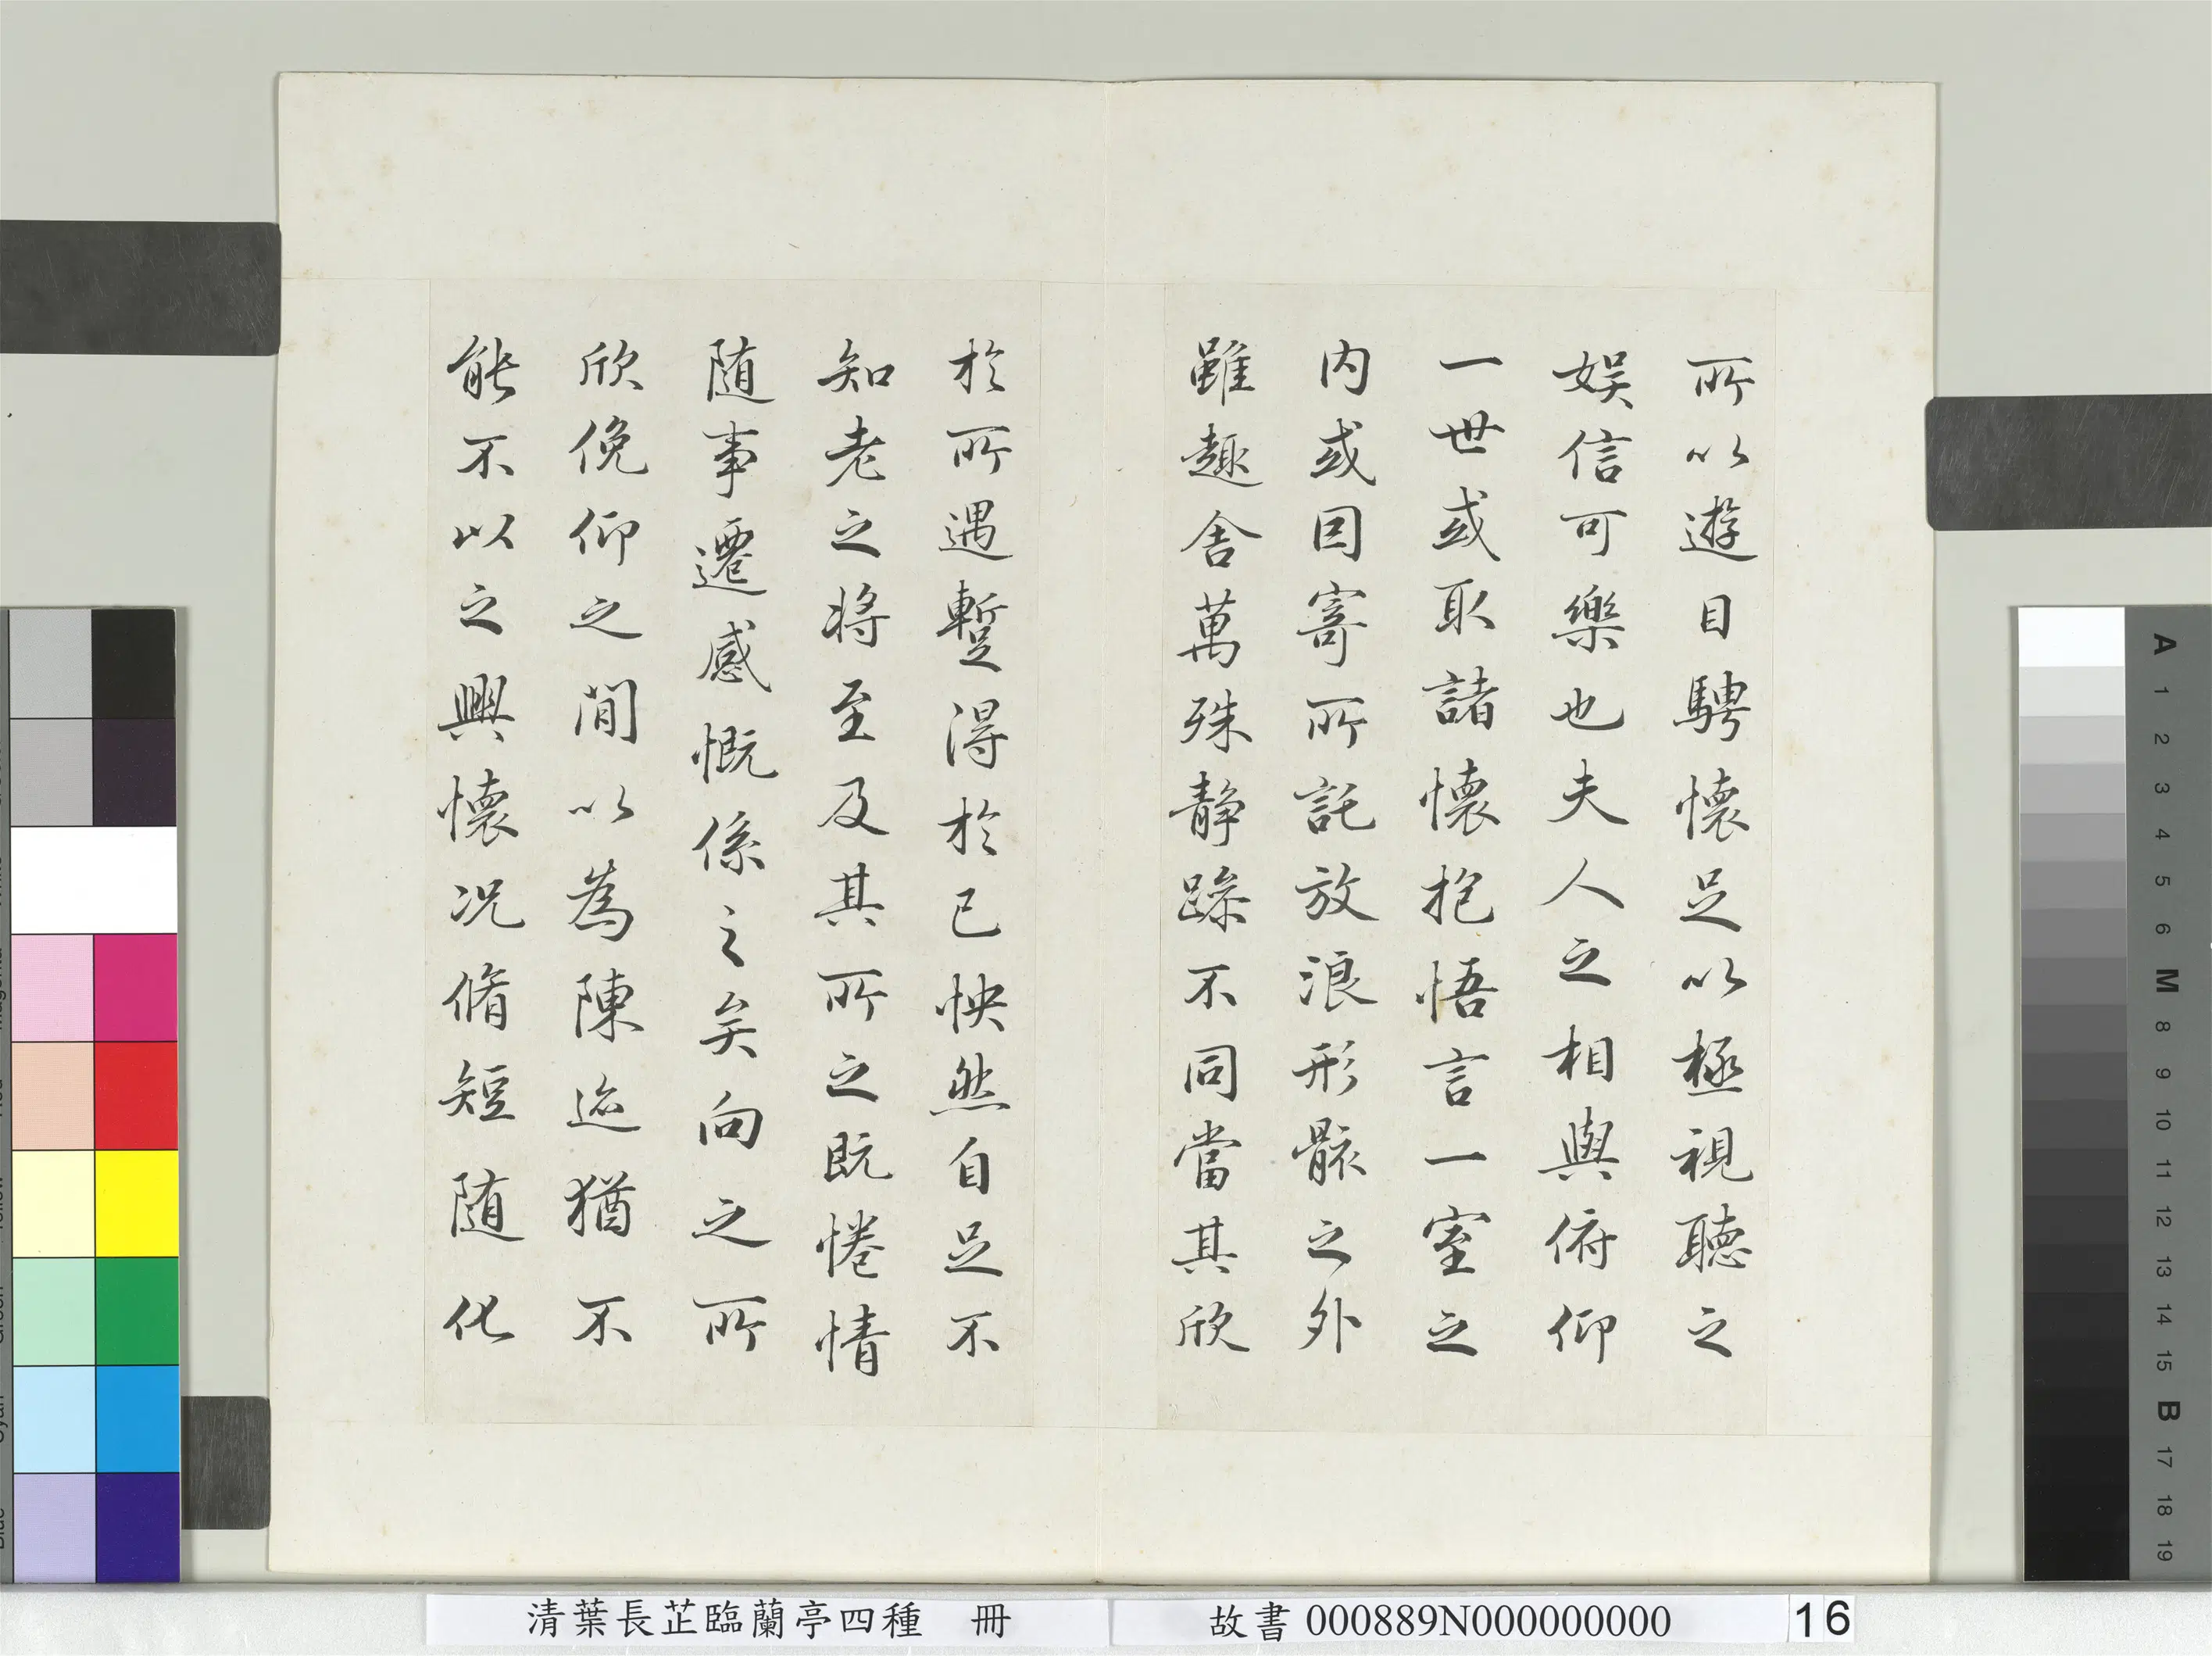 所以遊目騁懷足以極視聽之
娱信可樂也夫人之相與俯仰
一世或取諸懷抱悟言一室之
内或因寄所託放浪形骸之外
雖趣舍萬殊静躁不同當其欣
於所遇暫得於己怏然自足不
知老之将至及其所之既惓情
随事遷感慨係之矣向之所
欣俛仰之閒以為陳迹猶不
能不以之興懷况脩短随化
清葉長芷臨蘭亭四種 冊
故書 000889N000000000
16
A
1
2
3
4
5
6
M
8
9
10
11
12
13
14
15
B
17
18
19